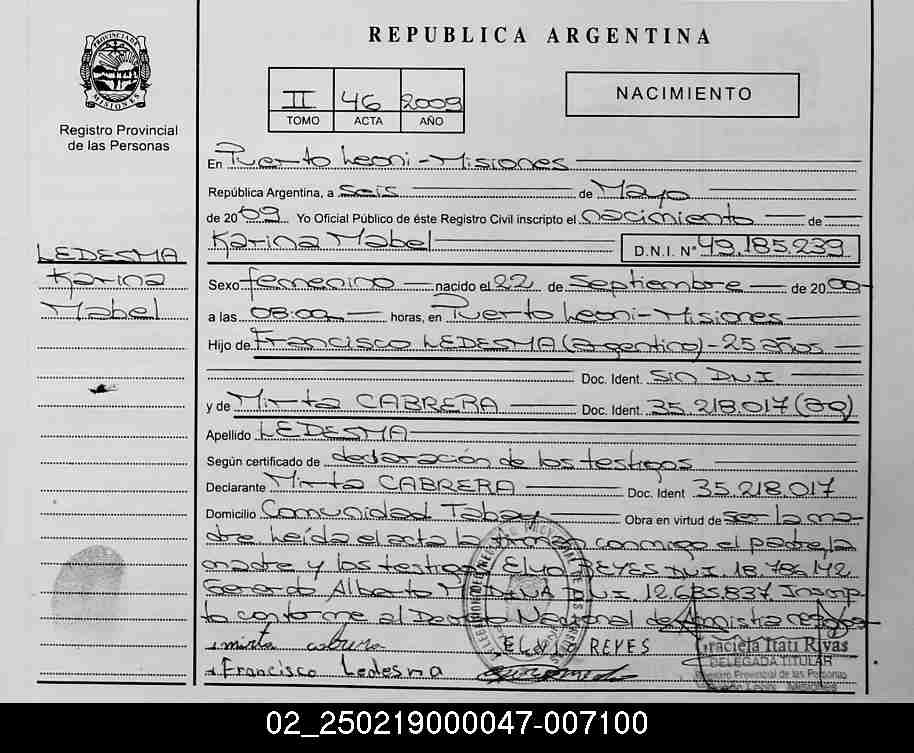 REPUBLICA ARGENTINA
PROVINCIA DE MISIONES
Registro Provincial
de las Personas
II 46 2009
TOMO ACTA AÑO
NACIMIENTO
En Puerto Leoni - Misiones
República Argentina, a seis de Mayo
de 2009 Yo Oficial Público de éste Registro Civil inscripto el nacimiento de
Karina Mabel D.N.I. N° 49.185.239
LEDESMA
Karina
Mabel
Sexo femenino nacido el 22 de Septiembre de 2000
a las 08:00 horas, en Puerto Leoni - Misiones
Hijo de Francisco LEDESMA (argentino) - 25 años
Doc. Ident. sin DNI
y de Mirta CABRERA Doc. Ident. 35.218.017 (ag)
Apellido LEDESMA
Según certificado de declaración de los testigos
Declarante Mirta CABRERA Doc. Ident 35.218.017
Domicilio Comunidad Tabay Obra en virtud de ser la ma-
dre leída el acta la firman conmigo el padre, la
madre y los testigos REYES DNI. 18.786.172
Gerardo Alberto DNI. 12.685.837. Inscrip-
to conforme al Decreto Nacional de Amnistia
mirta cabrera ELVI REYES
Francisco Ledesma
Graciela Itati Rivas
DELEGADA TITULAR
Registro Provincial de las Personas
Leoni Misiones
02_250219000047-007100